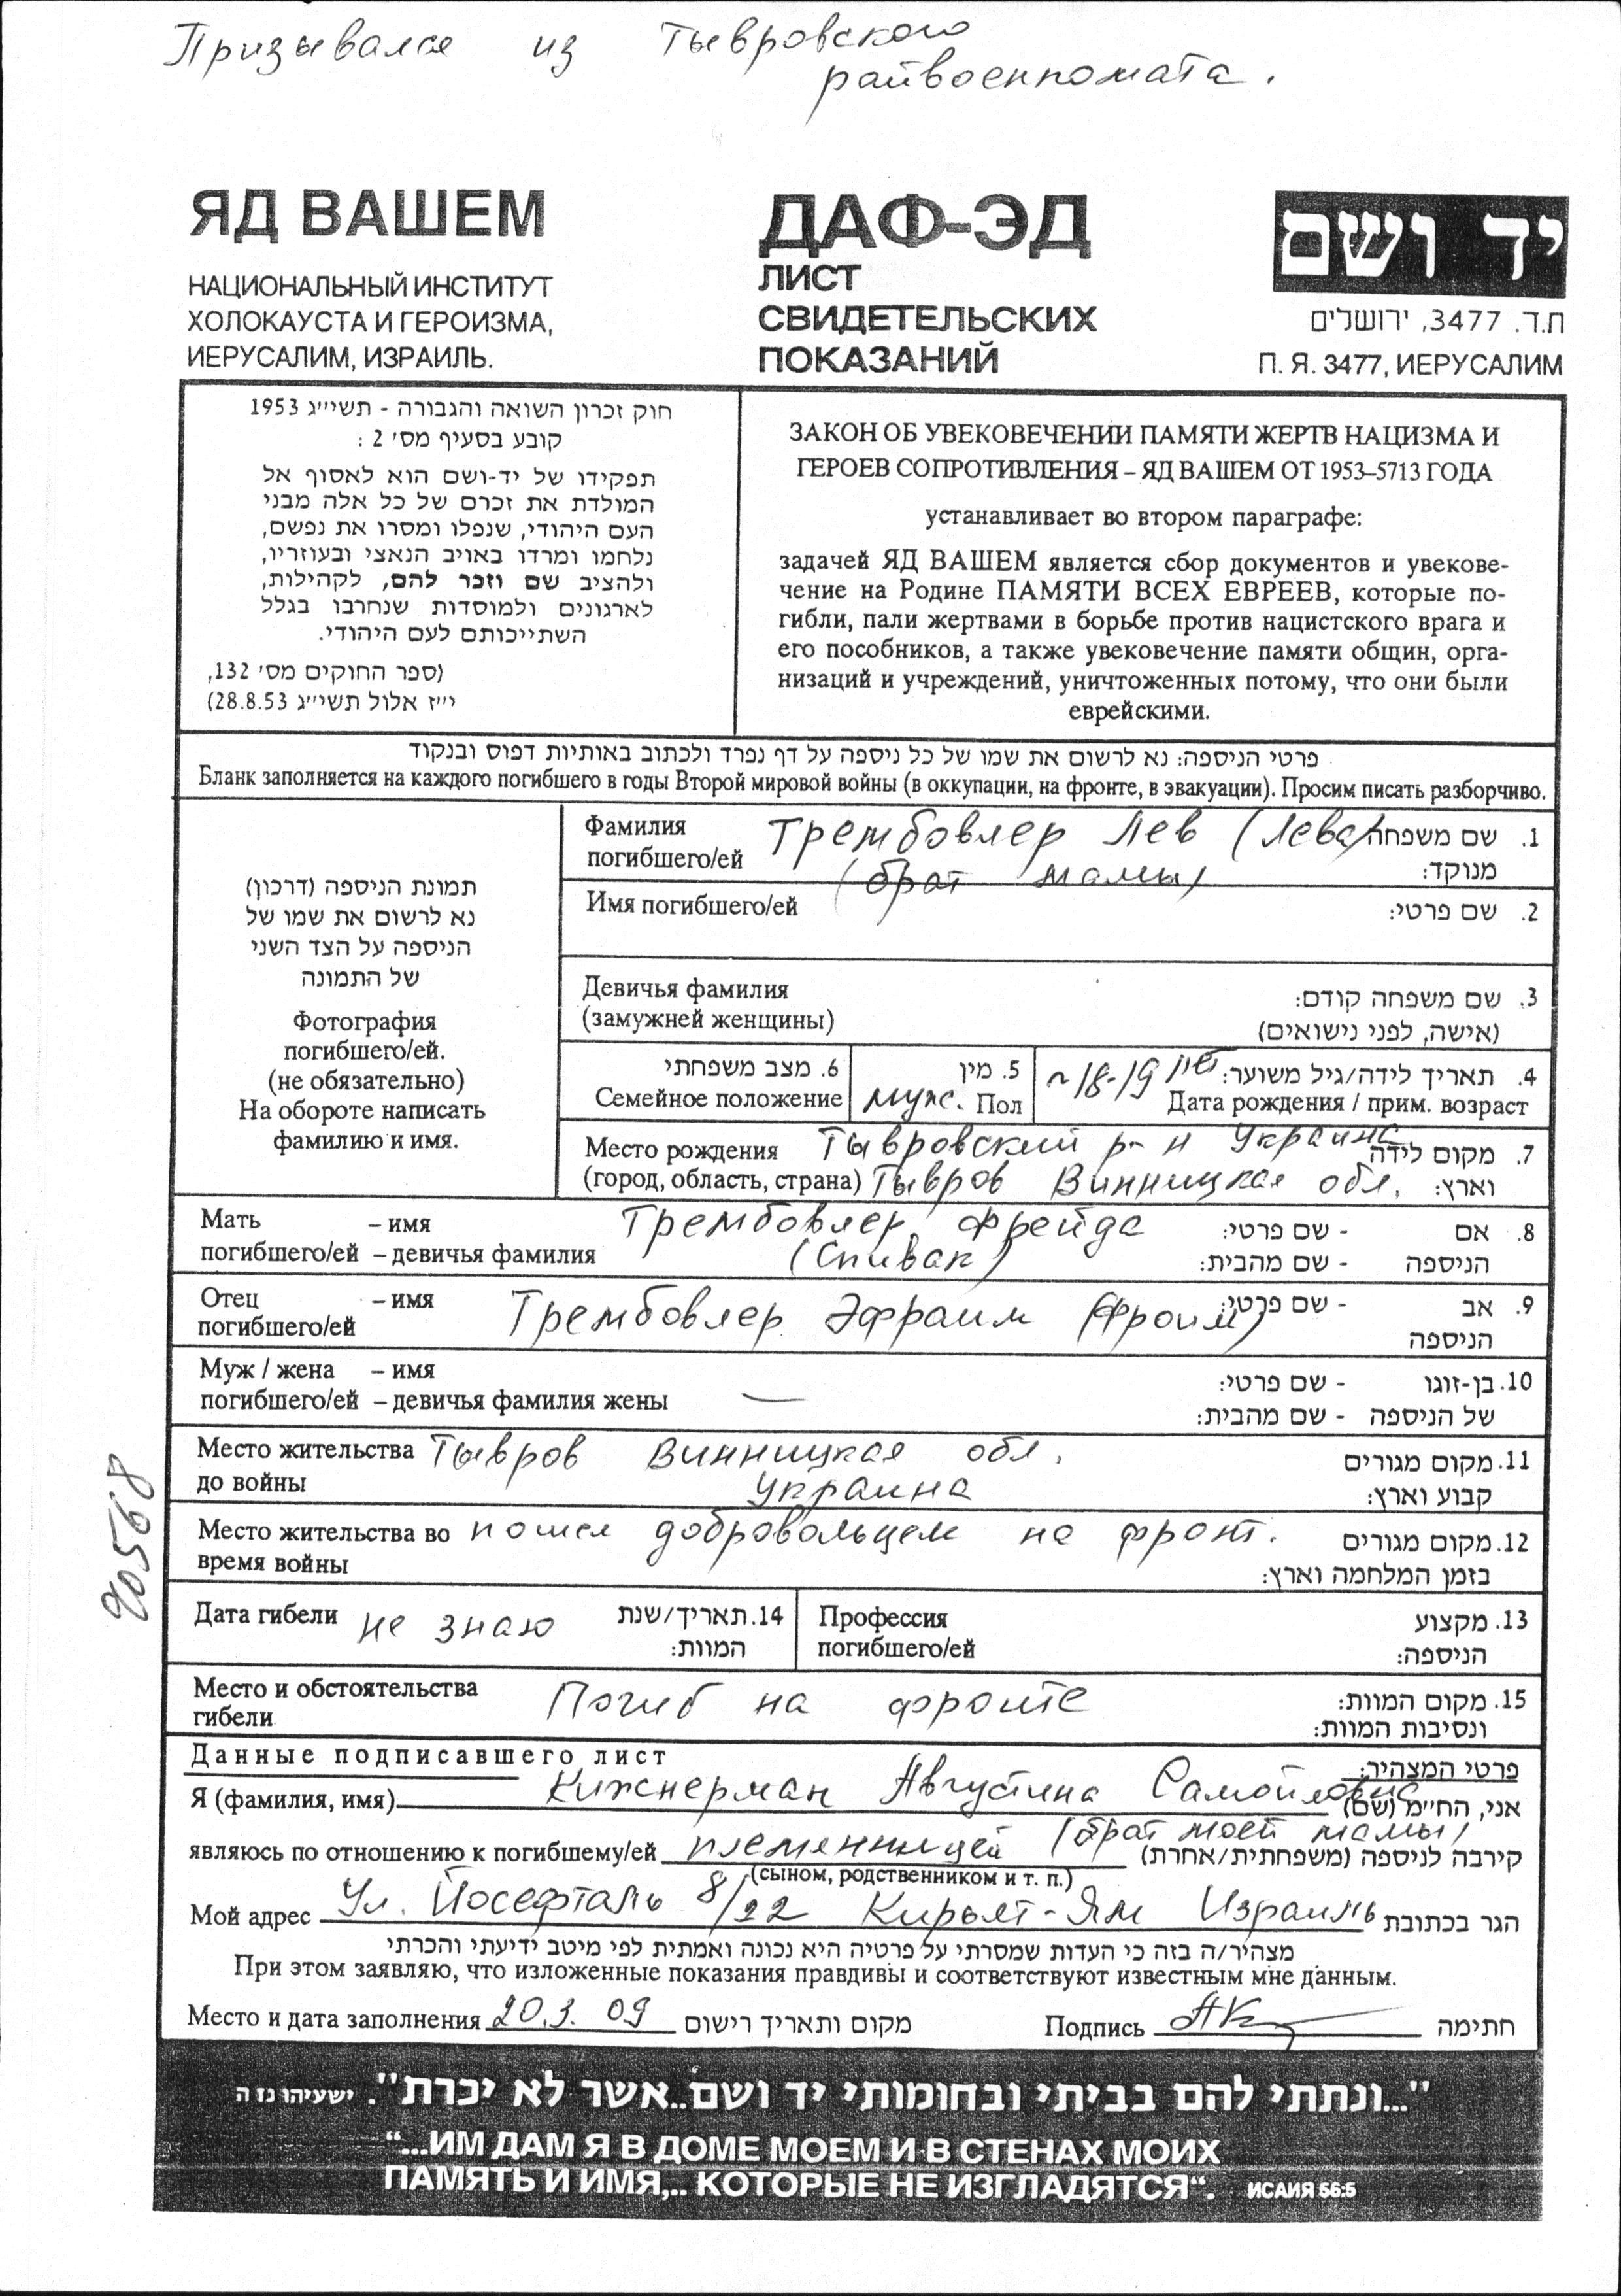 Призывался из Тывровского
райвоенкомата.
ЯД ВАШЕМ
НАЦИОНАЛЬНЫЙ ИНСТИТУТ
ХОЛОКАУСТА И ГЕРОИЗМА,
ИЕРУСАЛИМ, ИЗРАИЛЬ.
ДАФ-ЭД
ЛИСТ
СВИДЕТЕЛЬСКИХ
ПОКАЗАНИЙ
יד ושם
ת.ד. 3477, ירושלים
П. Я. 3477, ИЕРУСАЛИМ
חוק זכרון השואה והגבורה - תשי״ג 1953
קובע בסעיף מס׳ 2 :
תפקידו של יד-ושם הוא לאסוף אל
המולדת את זכרם של כל אלה מבני
העם היהודי, שנפלו ומסרו את נפשם,
נלחמו ומרדו באויב הנאצי ובעוזריו,
ולהציב שם וזכר להם, לקהילות,
לארגונים ולמוסדות שנחרבו בגלל
השתייכותם לעם היהודי.
(ספר החוקים מס׳ 132,
י״ז אלול תשי״ג 28.8.53)
ЗАКОН ОБ УВЕКОВЕЧЕНИИ ПАМЯТИ ЖЕРТВ НАЦИЗМА И
ГЕРОЕВ СОПРОТИВЛЕНИЯ – ЯД ВАШЕМ ОТ 1953–5713 ГОДА
устанавливает во втором параграфе:
задачей ЯД ВАШЕМ является сбор документов и увекове-
чение на Родине ПАМЯТИ ВСЕХ ЕВРЕЕВ, которые по-
гибли, пали жертвами в борьбе против нацистского врага и
его пособников, а также увековечение памяти общин, орга-
низаций и учреждений, уничтоженных потому, что они были
еврейскими.
פרטי הניספה: נא לרשום את שמו של כל ניספה על דף נפרד ולכתוב באותיות דפוס ובנקוד
Бланк заполняется на каждого погибшего в годы Второй мировой войны (в оккупации, на фронте, в эвакуации). Просим писать разборчиво.
תמונת הניספה (דרכון)
נא לרשום את שמו של
הניספה על הצד השני
של התמונה
Фотография
погибшего/ей.
(не обязательно)
На обороте написать
фамилию и имя.
Фамилия Трембовлер Лев (Лева) שם משפחה .1
погибшего/ей (брат мамы) מנוקד:
Имя погибшего/ей שם פרטי: .2
Девичья фамилия שם משפחה קודם: .3
(замужней женщины) (אישה, לפני נישואים)
6. מצב משפחתי
Семейное положение
5. מין
муж. Пол
~ 18-19 лет תאריך לידה/גיל משוער: .4
Дата рождения / прим. возраст
Место рождения Тывровский р-н Украина מקום לידה .7
(город, область, страна) Тывров Винницкая обл. וארץ:
Мать – имя Трембовлер Фрейда אם - שם פרטי: .8
погибшего/ей – девичья фамилия (Спивак) הניספה - שם מהבית:
Отец – имя Трембовлер Эфраим (Фроим) אב - שם פרטי: .9
погибшего/ей הניספה
Муж / жена – имя בן-זוגו - שם פרטי: .10
погибшего/ей – девичья фамилия жены — של הניספה - שם מהבית:
Место жительства Тывров Винницкая обл. מקום מגורים .11
до войны Украина קבוע וארץ:
Место жительства во пошел добровольцем на фронт. מקום מגורים .12
время войны בזמן המלחמה וארץ:
Дата гибели не знаю 14. תאריך/שנת
המוות:
Профессия מקצוע .13
погибшего/ей הניספה:
Место и обстоятельства Погиб на фронте מקום המוות: .15
гибели ונסיבות המוות:
Данные подписавшего лист פרטי המצהיר:
Я (фамилия, имя) Кижнерман Августина Самойловна אני, החי״מ (שם)
являюсь по отношению к погибшему/ей племянницей (брат моей мамы) קירבה לניספה (משפחתית/אחרת)
(сыном, родственником и т. п.)
Мой адрес Ул. Йосефталь 8/22 Кирьят-Ям Израиль הגר בכתובת
מצהיר/ה בזה כי העדות שמסרתי על פרטיה היא נכונה ואמתית לפי מיטב ידיעתי והכרתי
При этом заявляю, что изложенные показания правдивы и соответствуют известным мне данным.
Место и дата заполнения 20.3. 09 מקום ותאריך רישום Подпись АК חתימה
"...ונתתי להם בביתי ובחומותי יד ושם..אשר לא יכרת". ישעיהו נו ה
“...ИМ ДАМ Я В ДОМЕ МОЕМ И В СТЕНАХ МОИХ
ПАМЯТЬ И ИМЯ,.. КОТОРЫЕ НЕ ИЗГЛАДЯТСЯ“. ИСАИЯ 56:5